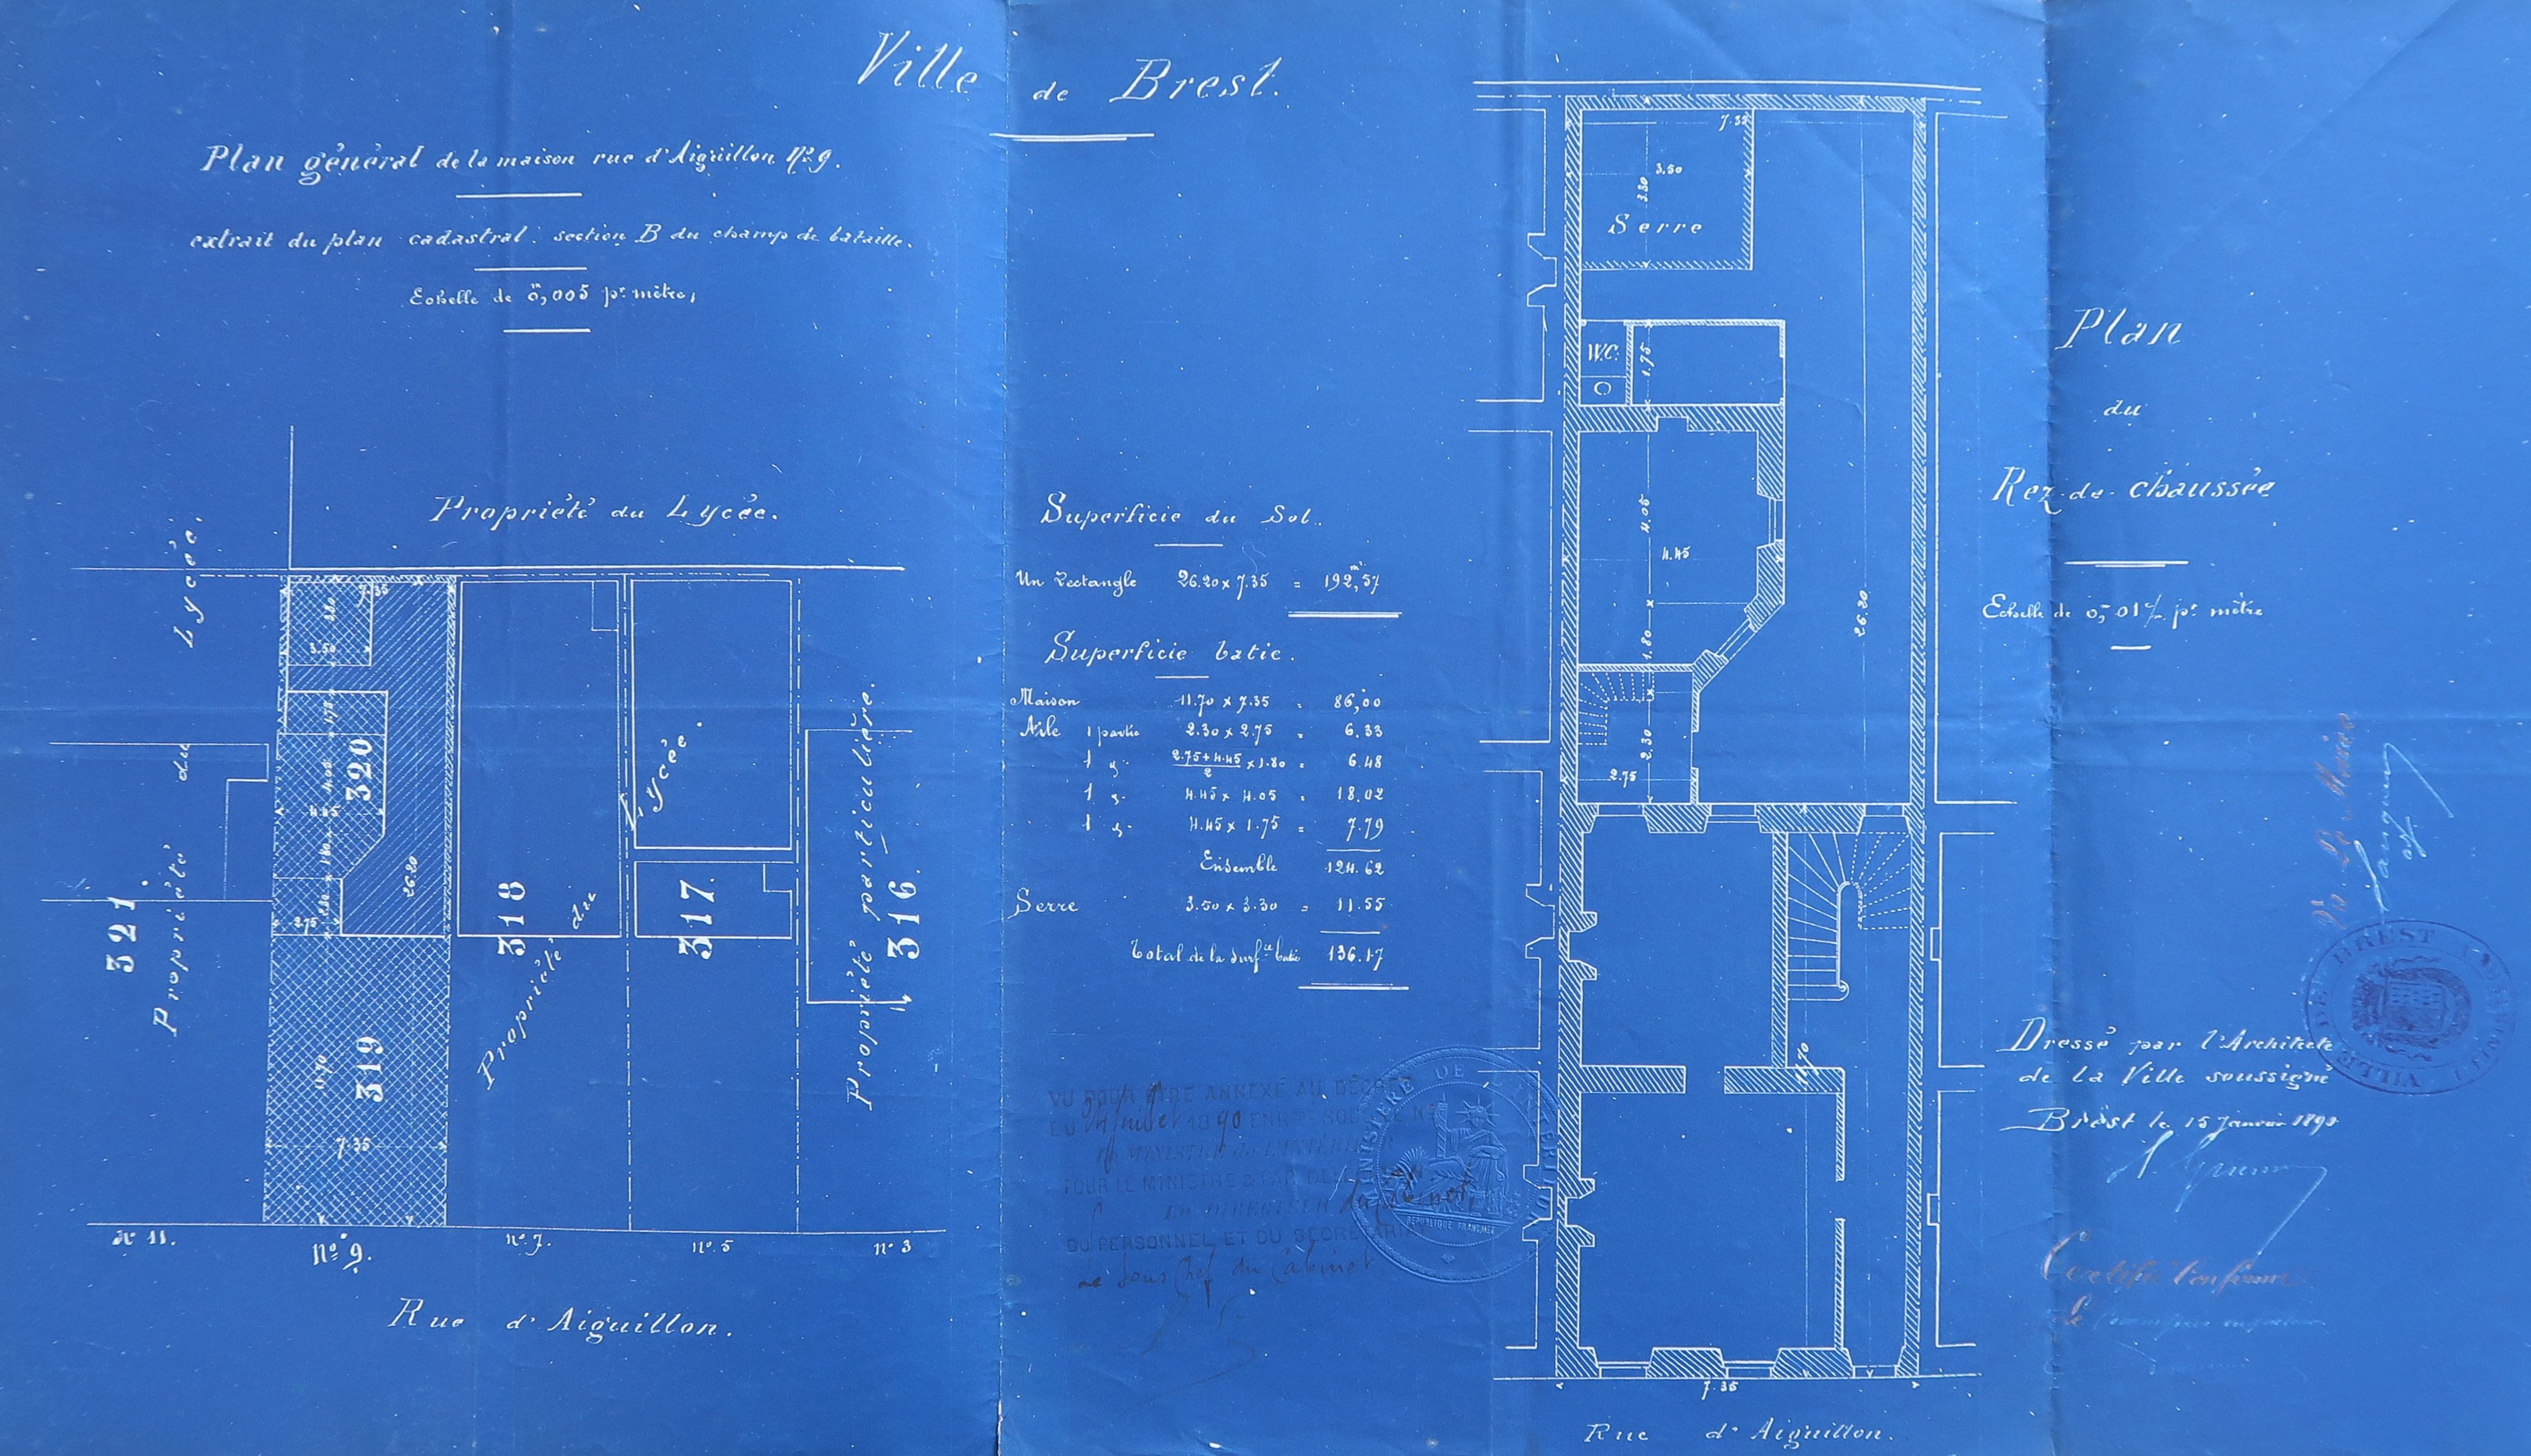 Ville de Brest.
Plan général de la maison rue d'Aiguillon, Nº 9.
extrait du plan cadastral. section B du champ de bataille.
Echelle de 0,m005 pr mètre,
Propriété du Lycée.
Propriété du Lycée.
321
320
319
318
317.
316.
Propriété du Lycée.
Propriété particulière.
7.35
3.30
3.50
1.75
4.05
4.45
1.80
26.20
2.30
2.75
11.70
7.35
Nº 11.
Nº 9.
Nº 7.
Nº 5
Nº 3
Rue d'Aiguillon.
Superficie du Sol.
Un Rectangle 26.20 x 7.35 = 192,m57
Superficie batie.
Maison 11.70 x 7.35 = 86,00
Aile 1 partie 2.30 x 2.75 = 6.33
1 d° 2.75+4.45/2 x 1.80 = 6.48
1 d° 4.45 x 4.05 = 18.02
1 d° 4.45 x 1.75 = 7.79
Ensemble 124.62
Serre 3.50 x 3.30 = 11.55
Total de la surfce batie 136.17
VU POUR ÊTRE ANNEXÉ AU DÉCRET
DU 24 juillet 1890 ENREG. SOUS LE Nº
LE MINISTRE de L'INTÉRIEUR
POUR LE MINISTRE & PAR DÉLÉGATION
LE DIRECTEUR du Cabinet,
DU PERSONNEL ET DU SECRÉTARIAT
Le Sous Chef du Cabinet
MINISTÈRE DE L'INTERIEUR
RÉPUBLIQUE FRANÇAISE
7.35
3.50
3.30
Serre
W.C.
1.75
4.05
4.45
1.80
26.20
2.30
2.75
11.70
7.35
Rue d'Aiguillon.
Plan
du
Rez-de-chaussée
Echelle de 0,m01c/m pr mètre
Vu Le Maire
VILLE DE BREST
Dressé par l'Architecte
de la Ville soussigné
Brest le 15 Janvier 1890
Certifié conforme